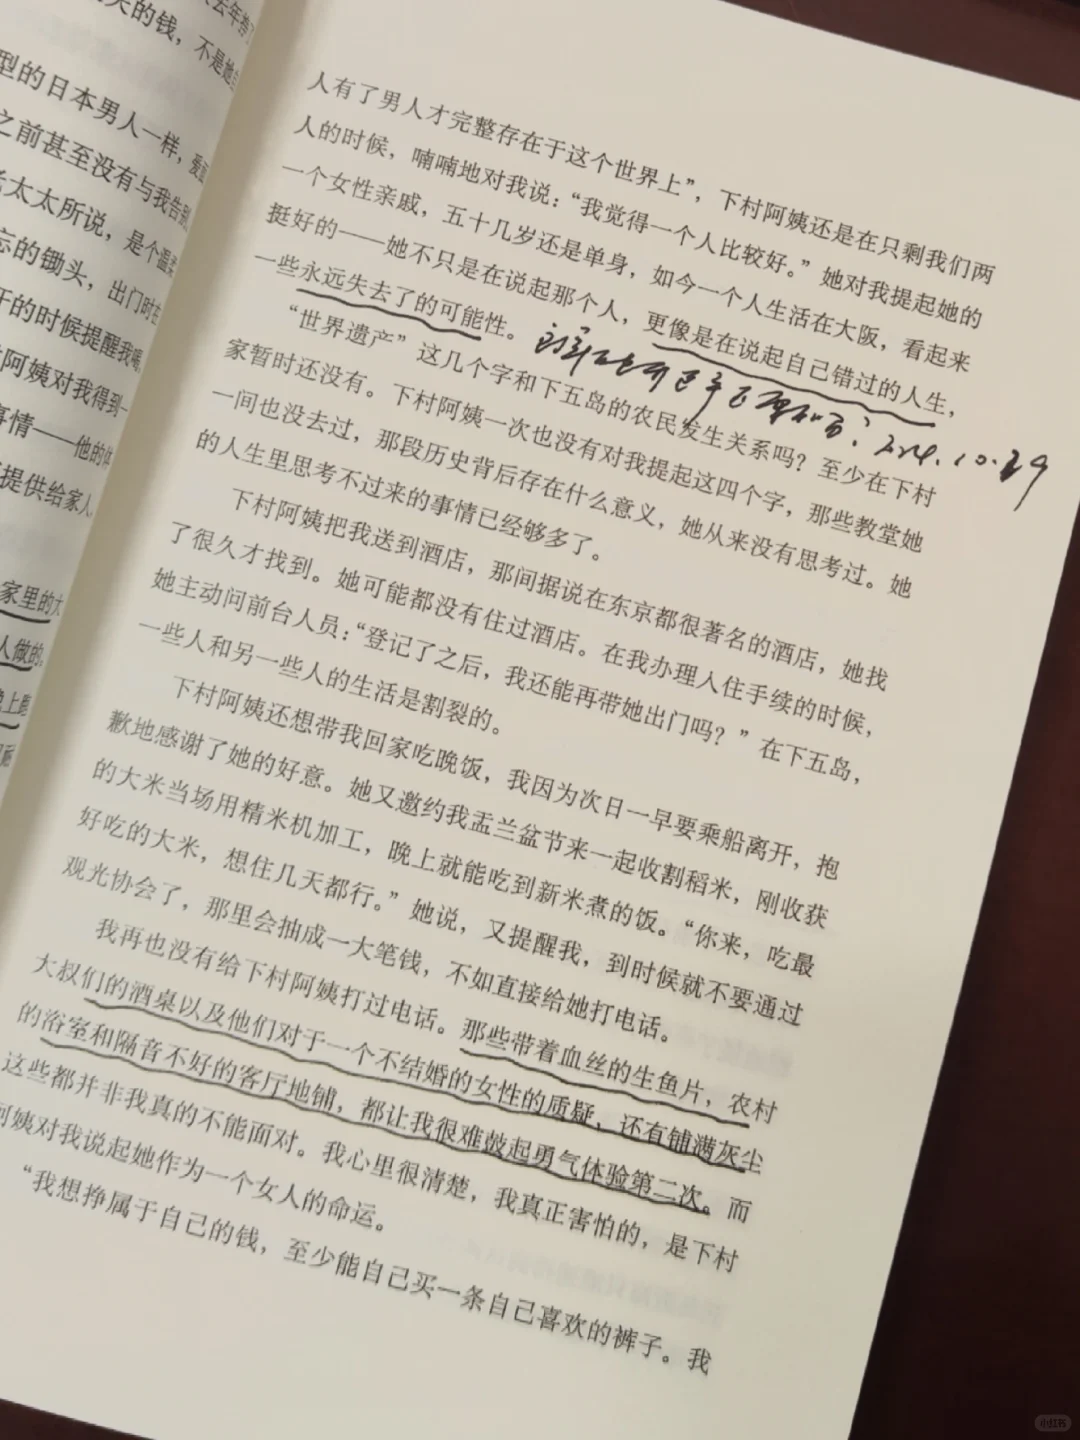 去年搭
天的钱，不是她
型的日本男人一样，爱
之前甚至没有与我告别
太太所说，是个温
忘的锄头，出门时在
的时候提醒我喝
阿姨对我得到一
事情——他的体
提供给家人
家里的大
人做的，
晚上
人有了男人才完整存在于这个世界上”，下村阿姨还是在只剩我们两
人的时候，喃喃地对我说：“我觉得一个人比较好。”她对我提起她的
一个女性亲戚，五十几岁还是单身，如今一个人生活在大阪，看起来
挺好的——她不只是在说起那个人，更像是在说起自己错过的人生，
一些永远失去了的可能性。
2024.10.29
“世界遗产”这几个字和下五岛的农民发生关系吗？至少在下村
家暂时还没有。下村阿姨一次也没有对我提起这四个字，那些教堂她
一间也没去过，那段历史背后存在什么意义，她从来没有思考过。她
的人生里思考不过来的事情已经够多了。
下村阿姨把我送到酒店，那间据说在东京都很著名的酒店，她找
了很久才找到。她可能都没有住过酒店。在我办理入住手续的时候，
她主动问前台人员：“登记了之后，我还能再带她出门吗？”在下五岛，
一些人和另一些人的生活是割裂的。
下村阿姨还想带我回家吃晚饭，我因为次日一早要乘船离开，抱
歉地感谢了她的好意。她又邀约我盂兰盆节来一起收割稻米，刚收获
的大米当场用精米机加工，晚上就能吃到新米煮的饭。“你来，吃最
好吃的大米，想住几天都行。”她说，又提醒我，到时候就不要通过
观光协会了，那里会抽成一大笔钱，不如直接给她打电话。
我再也没有给下村阿姨打过电话。那些带着血丝的生鱼片，农村
大叔们的酒桌以及他们对于一个不结婚的女性的质疑，还有铺满灰尘
的浴室和隔音不好的客厅地铺，都让我很难鼓起勇气体验第二次。而
这些都并非我真的不能面对。我心里很清楚，我真正害怕的，是下村
阿姨对我说起她作为一个女人的命运。
“我想挣属于自己的钱，至少能自己买一条自己喜欢的裤子。我
小红书